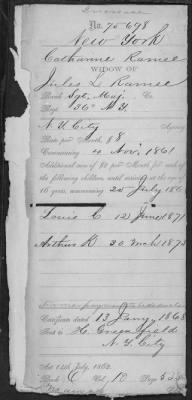 Increase
No. 75.698
New York
Catharine Ramee
WIDOW OF
Jules L. Ramee
Rank Sgt. Maj. Co.
Regt 36" N.Y.
N.Y. City Agency
Rate per Month, $8
Commencing 4 Nov. 1861
Additional sum of $2 per Month for each of
the following children, until arriving at the age of
16 years, commencing 25 July 186
Louis C. 12 June 1871
Arthur R 30 Mch 1875
Certificate dated 13 Jany. 1868
Sent to H. Greenfield
N.Y. City
Act 14th July, 1862.
Book C Vol. 10 Page